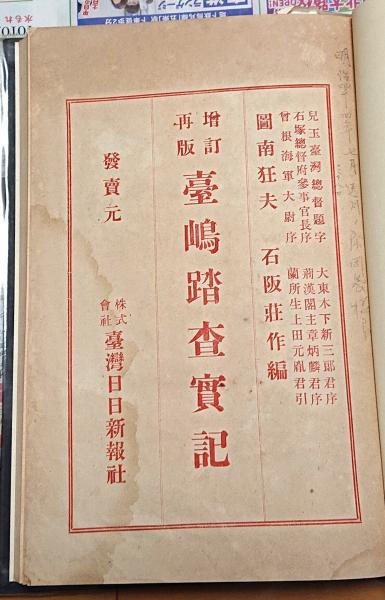 兒玉臺灣總督題字
石塚總督府參事官長序
曾根海軍大尉序
大東木下新三郎君序
菿漢閣主章炳麟君序
蘭所生上田元胤君引
圖南狂夫 石阪莊作編
增訂
再版
臺嶋踏查實記
發賣元
株式
會社
臺灣日日新報社